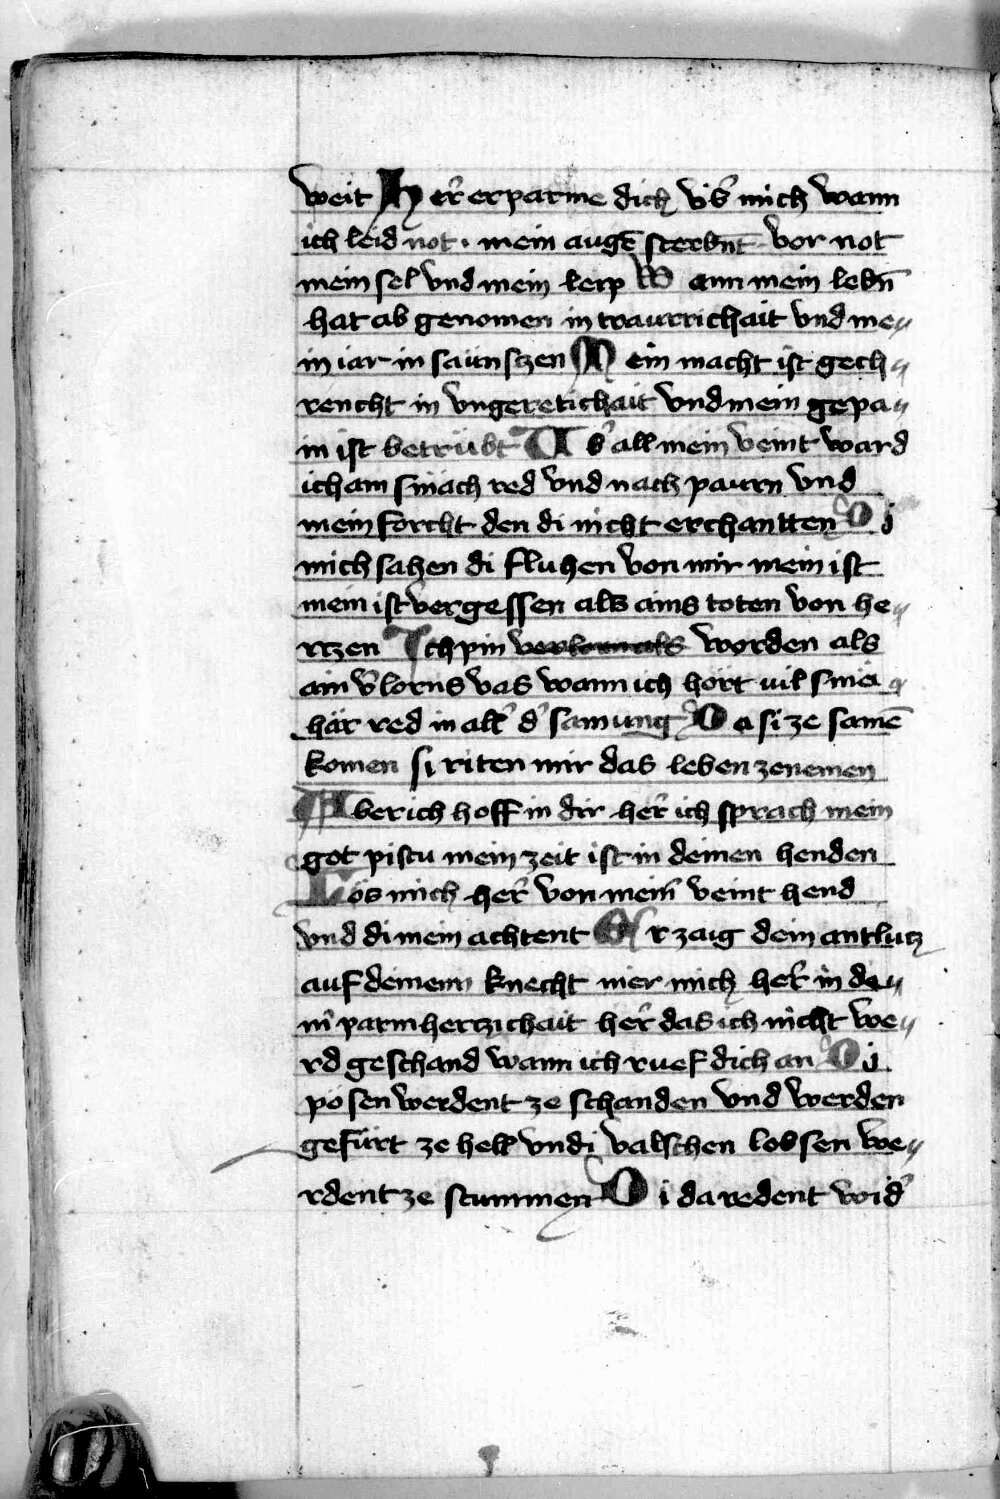 weit Her̄ erparme dich vb̄ mich wann
ich leid not · mein augē sterbnt vor not
mein sel vnd mein leip Wann mein lebn̄
hat ab genomen in traurrichait vnd me〃
in iar in säunftzen Mein macht ist gech〃
rencht in vngeretichait vnd mein gepa〃
in ist betrübt Vb' all mein veint ward
ich am smäch red vnd nach paurn vnd
mein forcht den di nicht erchantten Di
mich sahen di fluhen von mir mein ist
mein ist vergessen als ains toten von he〃
rtzen Ich pin worden als
ain v̄lorns vas wann ich hört uil smä
här red in all' d' samung Da si ze samē
komen si riten mir das leben zenemen
Aber ich hoff in dir her̄ ich sprach mein
got pistu mein zeit ist in deinen henden
Lös mich her̄ von mein̄ veint hend
vnd di mein achtent Erzaig dein antlutz
auf deinenn knecht ner mich her̄ in de〃
in̄ parmhertzichait her̄ das ich nicht we〃
rd geschand wann ich ruef dich an Di
pösen werdent ze schanden vnd werden
gefürt ze hell vndi valschen lebsen we〃
rdent ze stummen Di da redent wid'